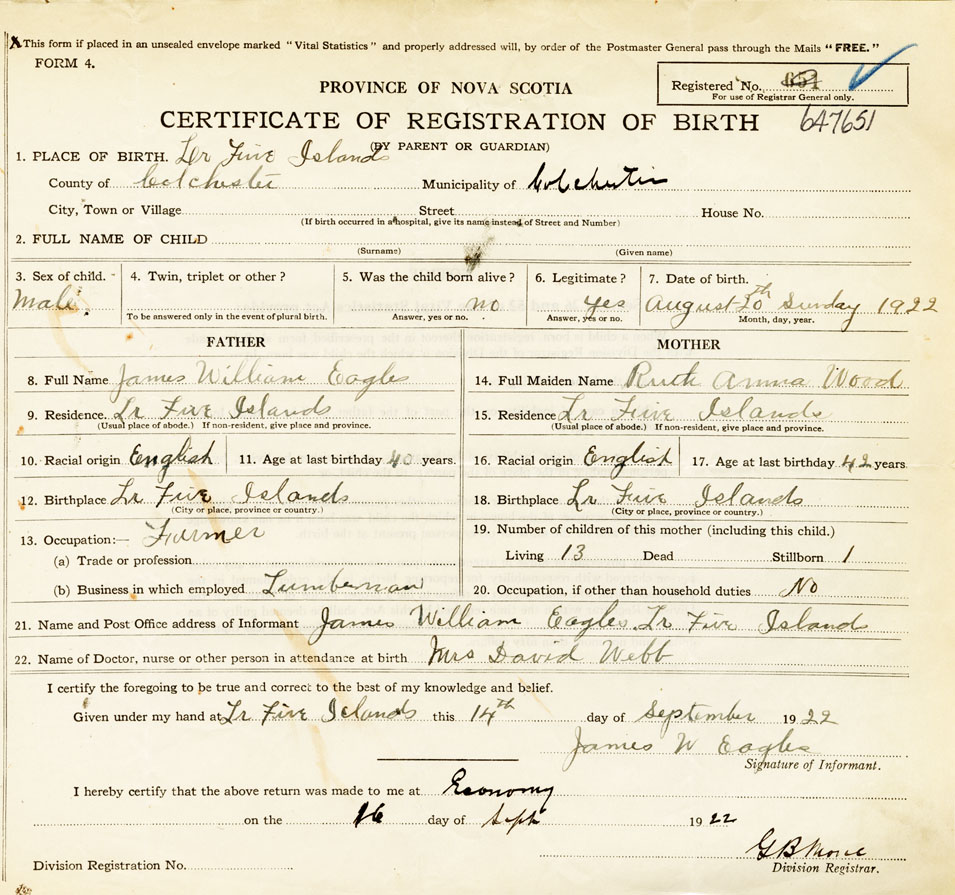 This form if placed in an unsealed envelope marked "Vital Statistics" and properly addressed will, by order of the Postmaster General pass through the Mails "FREE."
FORM 4.
PROVINCE OF NOVA SCOTIA
Registered No.
For use of Registrar General only.
CERTIFICATE OF REGISTRATION OF BIRTH 647651
(BY PARENT OR GUARDIAN)
1. PLACE OF BIRTH. Lr Five Islands
County of Colchester Municipality of Colchester
City, Town or Village Street House No.
(If birth occurred in a hospital, give its name instead of Street and Number)
2. FULL NAME OF CHILD
(Surname) (Given name)
3. Sex of child. 4. Twin, triplet or other? 5. Was the child born alive? 6. Legitimate? 7. Date of birth.
Male. no Yes August 20th Sunday 1922
To be answered only in the event of plural birth. Answer, yes or no. Answer, yes or no. Month, day, year.
FATHER MOTHER
8. Full Name James William Eagles 14. Full Maiden Name Ruth Anna Wood
9. Residence. Lr Five Islands 15. Residence Lr Five Islands
(Usual place of abode.) If non-resident, give place and province. (Usual place of abode.) If non-resident, give place and province.
10. Racial origin English 11. Age at last birthday 40 years. 16. Racial origin English 17. Age at last birthday 42 years.
12. Birthplace Lr Five Islands 18. Birthplace Lr Five Islands
(City or place, province or country.) (City or place, province or country.)
13. Occupation:— Farmer 19. Number of children of this mother (including this child.)
(a) Trade or profession Living 13 Dead Stillborn 1
(b) Business in which employed Lumberman 20. Occupation, if other than household duties No
21. Name and Post Office address of Informant James William Eagles Lr Five Islands
22. Name of Doctor, nurse or other person in attendance at birth Mrs David Webb
I certify the foregoing to be true and correct to the best of my knowledge and belief.
Given under my hand at Lr Five Islands this 14th day of September 1922
James W Eagles
Signature of Informant.
I hereby certify that the above return was made to me at Economy
on the 16 day of Sept 1922
G B
Division Registration No. Division Registrar.